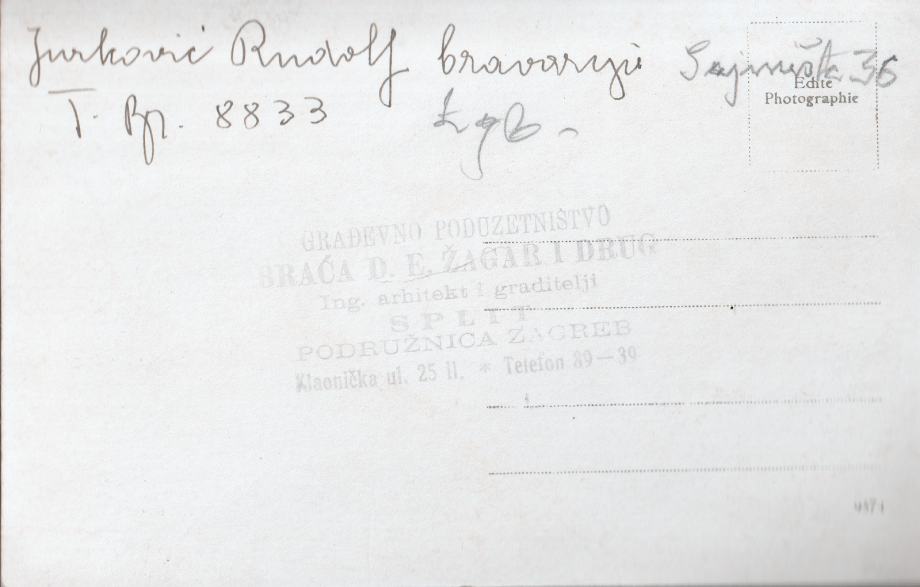 Jurković Rudolf bravarija Sajmišta 36
T. Br. 8833 Zgb.
Edite
Photographie
GRAĐEVNO PODUZETNIŠTVO
BRAĆA D. E. ŽAGAR I DRUG
Ing. arhitekt i graditelji
SPLIT
PODRUŽNICA ZAGREB
Klaonička ul. 25 II. * Telefon 89-39